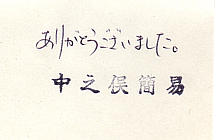 ありがとうございました。
中之俣簡易